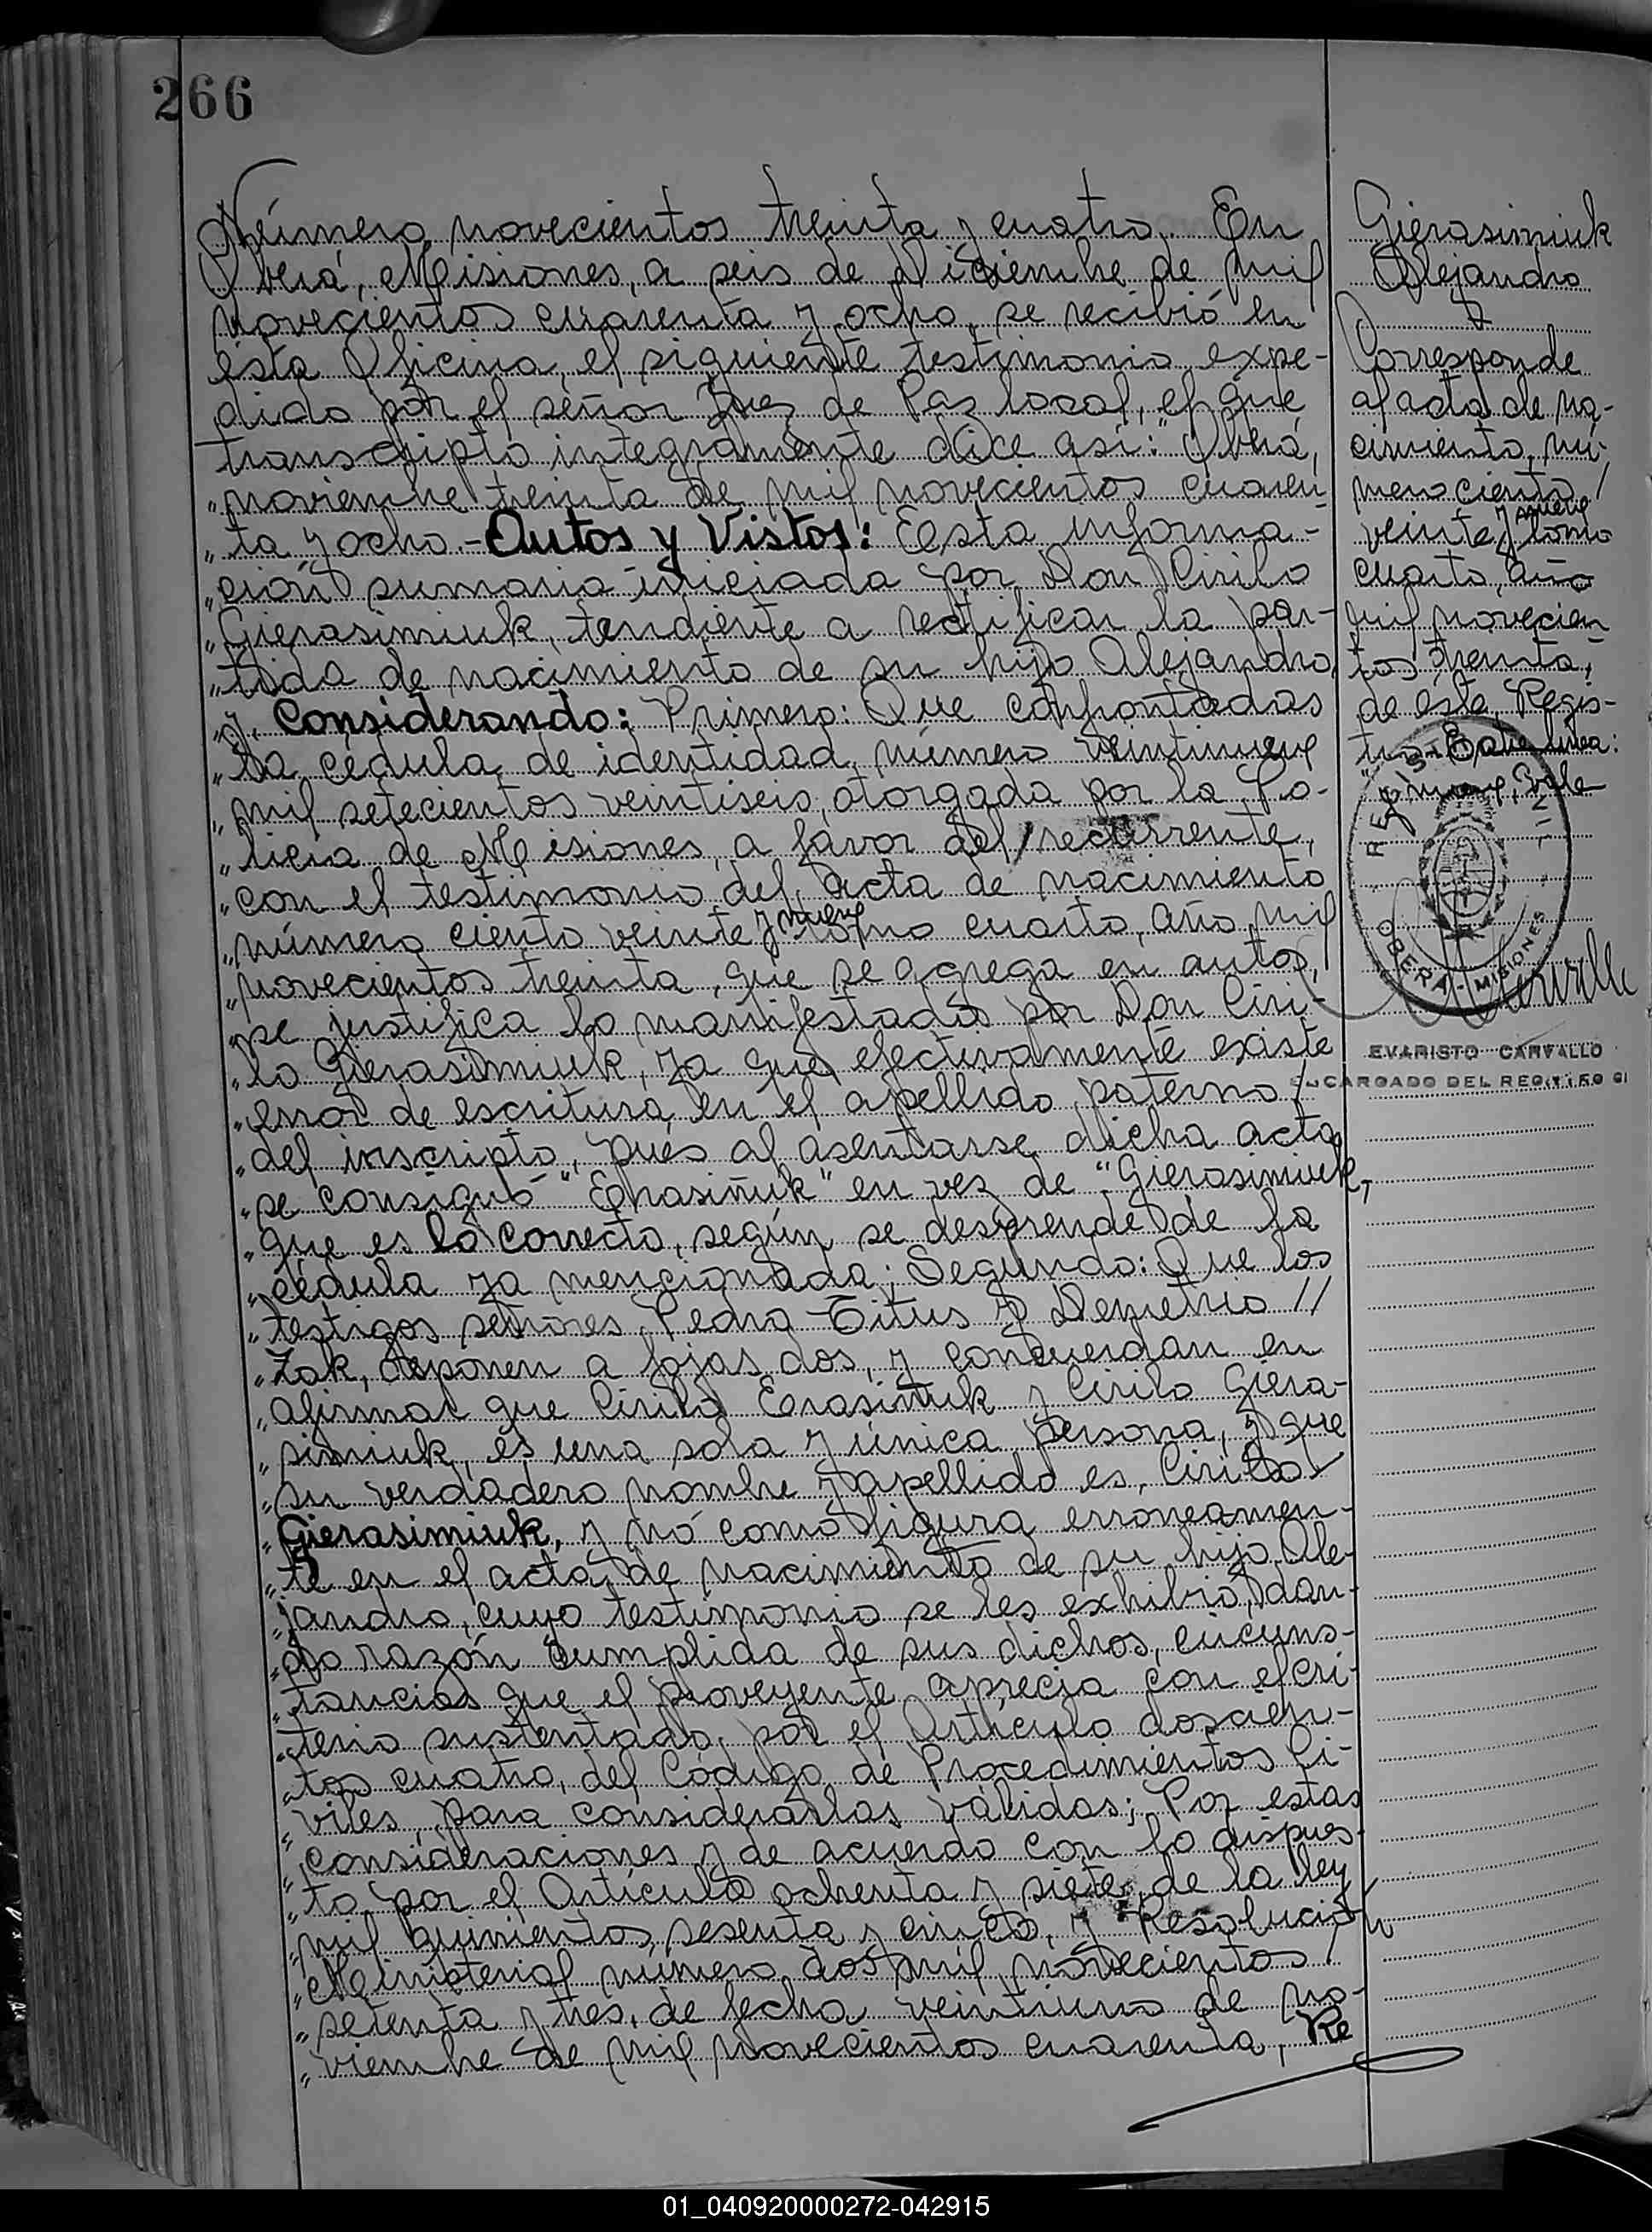 266
Número novecientos treinta y cuatro. En
Oberá, Misiones, a seis de Diciembre de mil
novecientos cuarenta y ocho, se recibió en
ésta Oficina, el siguiente testimonio expe-
dido por el señor Juez de Paz local, el que
transcripto integramente dice así: "Oberá,
" noviembre treinta de mil novecientos cuaren
" ta y ocho.- Autos y Vistos: Esta informa-
" ción sumaria iniciada por Don Cirilo
" Gierasimiuk, tendiente a rectificar la par-
" tida de nacimiento de su hijo Alejandro,
" y Considerando: Primero: Que confrontadas
" la cédula de identidad número veintinueve
" mil setecientos veintiseis, otorgada por la Po-
" licía de Misiones, a favor del recurrente,
" con el testimonio del acta de nacimiento
" número ciento veinte y nueve tomo cuarto, año mil
" novecientos treinta, que se agrega en autos,
" se justifica lo manifestado por Don Ciri-
" lo Gierasimiuk, ya que efectivamente existe
" error de escritura en el apellido paterno /
" del inscripto, pués al asentarse dicha acta
" se consignó "Erasiñuk" en vez de "Gierasimiuk,
" que es lo correcto, según se desprende de la
" cédula ya mencionada; Segundo: Que los
" testigos señores Pedro Titus y Demetrio //
" Zak, deponen a fojas dos, y concuerdan en
" afirmar que Cirilo Erasiñuk y Cirilo Giera-
" simiuk, es una sola y única persona, y que
" su verdadero nombre y apellido es, Cirilo
" Gierasimiuk, y nó como figura erroneamen-
" te en el acta de nacimiento de su hijo Ale-
" jandro, cuyo testimonio se les exhibió, dan-
" do razón cumplida de sus dichos, circuns-
" tancias que el proveyente aprecia con el cri-
" terio sustentado por el Artículo doscien-
" tos cuatro, del Código de Procedimientos Ci-
" viles, para considerarlas válidas; Por estas
" consideraciones y de acuerdo con lo dispues-
" to por el Artículo ochenta y siete de la ley
" mil quinientos sesenta y cinco, y Resolución
" Ministerial número dos mil novecientos /
" setenta y tres, de fecha veintiuno de no-
" viembre de mil novecientos cuarenta, Re
Gierasimiuk
Alejandro
Corresponde
al acta de na-
cimiento nú-
mero ciento /
veinte y nueve tomo
cuarto, año
mil novecien
tos treinta,
de éste Regis-
tro.- Entre línea:
y nueve, Vale
REGISTRO CIVIL
OBERA - MISIONES
EVARISTO CARVALLO
ENCARGADO DEL REGISTRO CI
01_040920000272-042915